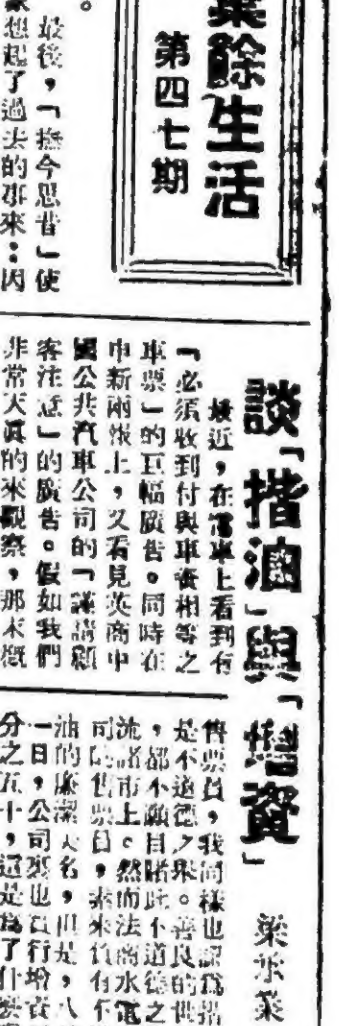 業餘生活
第四七期
最後，「撫今思昔」使
象想起了過去的事來：因
談「揩油」與「增資」
最近，在電車上看到有
「必須收到付與車資相等之
車票」的巨幅廣告。同時在
申新兩報上，又看見英商中
國公共汽車公司的「謹請顧
客注意」的廣告。假如我們
非常天眞的來觀察，那末概
售票員，我同樣也認爲揩
是不道德之舉。善良的世
，都不願目睹此不道德之
流諸市上。然而法商水電
司的售票員，素來負有不
油的廉潔大名，但是，八
一日，公司裏也實行增資
分之五十，這是爲了什麼